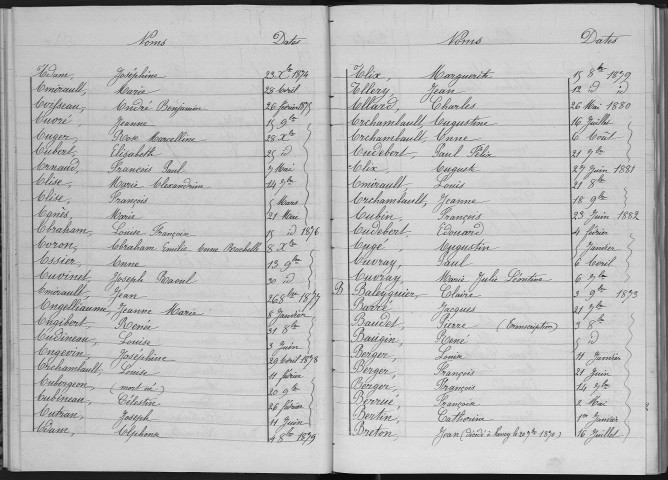 Noms Dates
Adam, Joséphine 23 Xbre 1874
Amirault, Marie 28 Avril
André Benjamin 26 février 1875
Auvré, Jeanne 15 9bre
Auger, Rose Marcelline 28 Xbre
Aubert, Elisabeth 25 id
Arnaud, François Paul 7 Mai
Alise, Marie Alexandrine 14 7bre
Alise, François 5 Mars
Agnès, Marie 21 Mai
Abraham, Louise Françoise 15 id 1876
Abraham Emilie Anne 8 Xbre
Assier, Anne 13 9bre
Auvinet, Joseph Raoul 30 id
Amirault, Jean 26 8bre 1877
Angelliaume, Jeanne Marie 8 Janvier
Angibert, Renée 31 8bre
Audineau, Louise 3 Juin
Angevin, Joséphine 29 Avril 1878
Archambault, Louise 11 février
Aubergeon, (mort né) 20 9bre
Aubineau, Célestin 26 février
Autran, Joseph 11 Juin
Adam, Alphonse 4 8bre 1879
Noms Dates
Alix, Marguerite 15 8bre 1879
Allery, Jean 12 id id
Allard, Charles 26 Mai 1880
Archambault, Augustine 16 Juillet
Archambault, Anne 6 Août
Audebert, Paul Félix 21 7bre
Alix, Auguste 27 Juin 1881
Amirault, Louis 21 8bre
Archambault, Jeanne 18 9bre
Aubin, François 23 Juin 1882
Audebert, Edouard 4 février
Augé, Augustin Janvier
Auvray, Paul 6 Avril
Auvray, Marie Julie Léontine 6 7bre
B Claire 3 9bre 1873
Barré, Jacques 21 7bre
Baudet, Pierre (Transcription) 3 8bre
Baugin, René 5 id
Berger, Louise 11 Janvier
Berger, François 21 Juin
Berger, François 14 7bre
Berrué, Françoise 2 Mai
Bertin, Catherine 1er Janvier
Breton, Jean (décédé à 1870) 16 Juillet